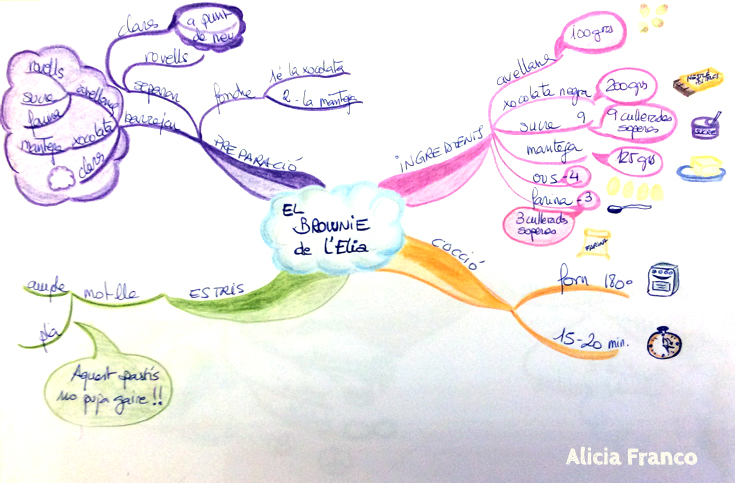 EL
BROWNIE
de L'Elia
PREPARACIÓ
separar
clares
a punt
de neu
rovells
fondre
1è la xocolata
2 - la mantega
barrejar
rovells
sucre
farina
avellanes
mantega
xocolata
clares
INGREDIENTS
avellanes
100 grs
xocolata negra
200 grs
sucre 9
9 cullerades
soperes
SUCRE
mantega
125 grs
ous - 4
farina - 3
3 cullerades
soperes
FARINA
COCCIÓ
forn 180º
15-20 min.
ESTRIS
motlle
ample
pla
Aquest pastís
no puja gaire!!
Alicia Franco